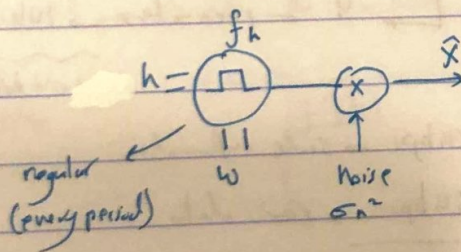 fh
h =
x
X̂
regular
(every period)
w
Noise
σn²